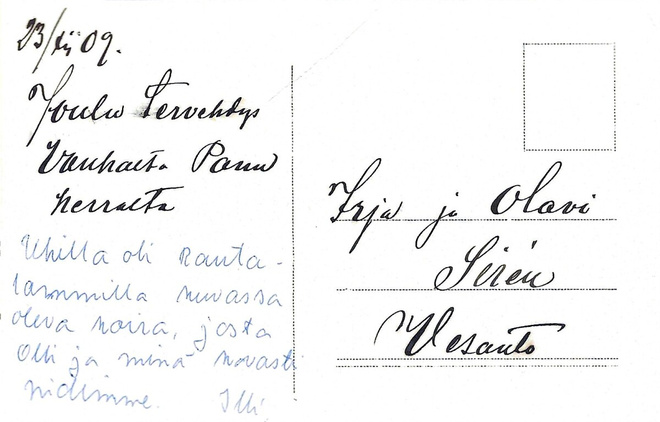 23/XII 09.
Joulu Tervehdys
Vanhalta Panu
herralta
Ukilla oli Ranta-
lammilla kuvassa
oleva koira, josta
Olli ja minä kovasti
pidimme. Illi.
Irja ja Olavi
Sirén
Vesanto